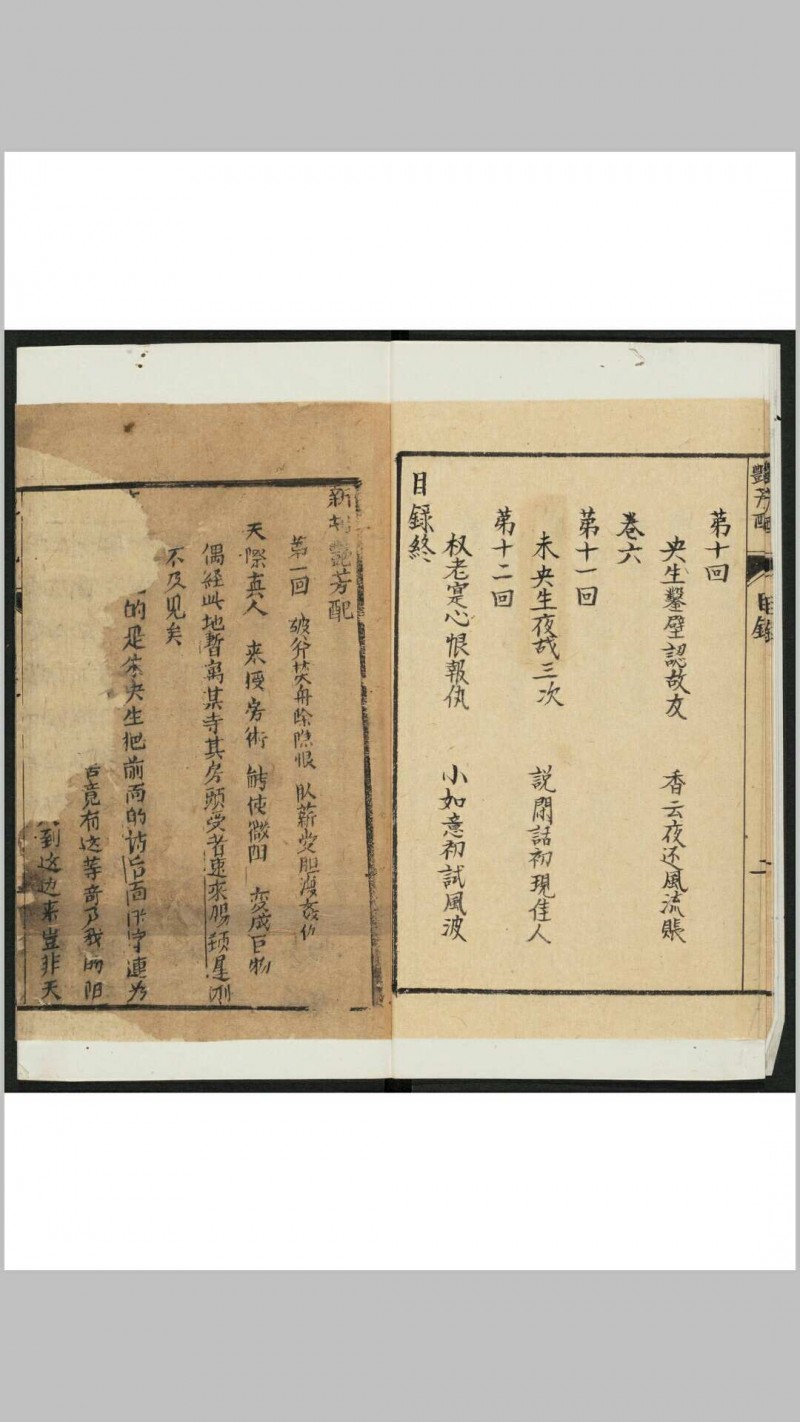 艷芳配
目錄
二
第十回
央生鑿壁認故友　香云夜还風流賬
卷六
第十一回
未央生夜哉三次　説閑話初現佳人
第十二回
权老寔心恨報仇　小如意初試風波
目錄終
新刊艷芳配
第一回　破斧焚舟除隐恨　臥薪受胆洩姦仇
天際真人　来授房術　能使微阳　变成巨物
偶經此地暫寓某寺其房頭受者速來賜頚遲则
不及见矣
的是第央生把前面的诗后面
古竟有这等奇乃我的阳
到这边来豈非天